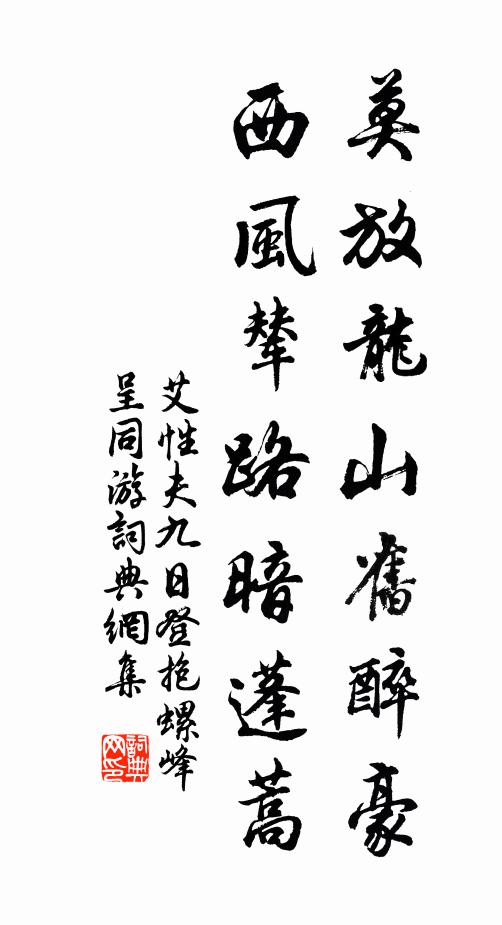 莫放龍山舊醉豪
西風輦路暗蓬蒿
艾性夫九日登抱螺峰
呈同游詞典網集
詞典网印